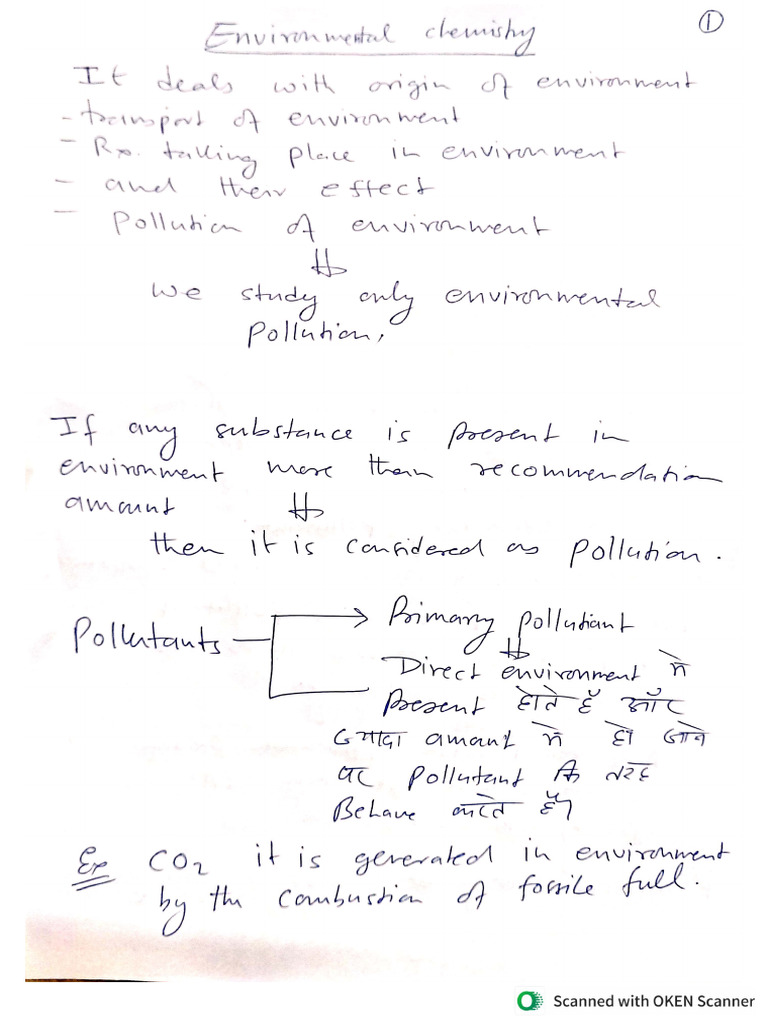 Environmental chemistry
①
It deals with origin of environment
- transport of environment
- Rxn. talking place in environment
- and their effect
- Pollution of environment
⇓
We study only environmental
Pollution,
If any substance is present in
environment more than recommendation
amount ⇓
then it is considered as pollution.
Pollutants → Primary pollutiant
⇓
Direct environment में
Present होते हैं और
ज्यादा amount में हो जाने
पर Pollutant कि तरह
Behave करते हैं।
Ex CO2 it is generated in environment
by the combustion of fossile full.
Scanned with OKEN Scanner